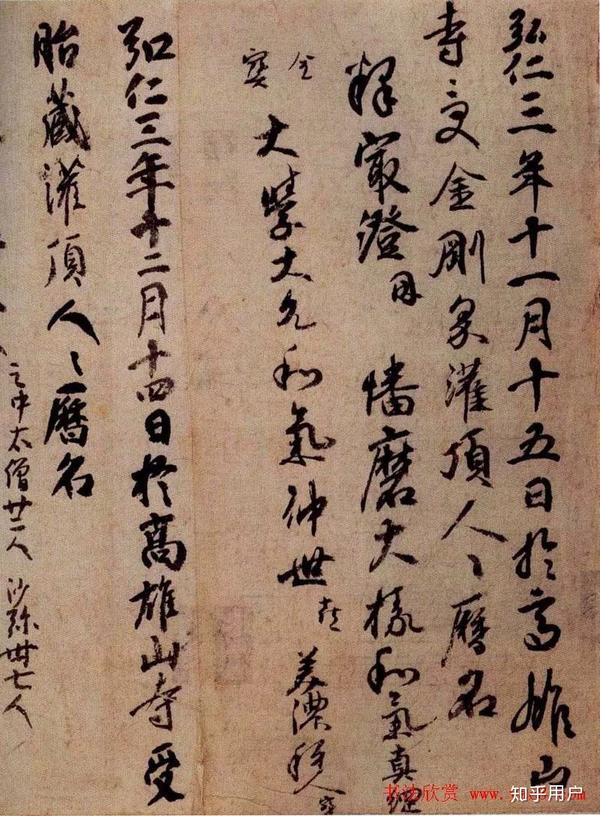 弘仁三年十一月十五日於高雄山
寺受金剛界灌頂人々暦名
釋最澄因 播磨大掾和氣真綱
金
大學大允和氣仲世喜 美濃種人寶
寶
弘仁三年十二月十四日於高雄山寺受
胎藏灌頂人々暦名
之中太僧廿二人 沙弥卅七人
书法欣赏 www.
知乎用户